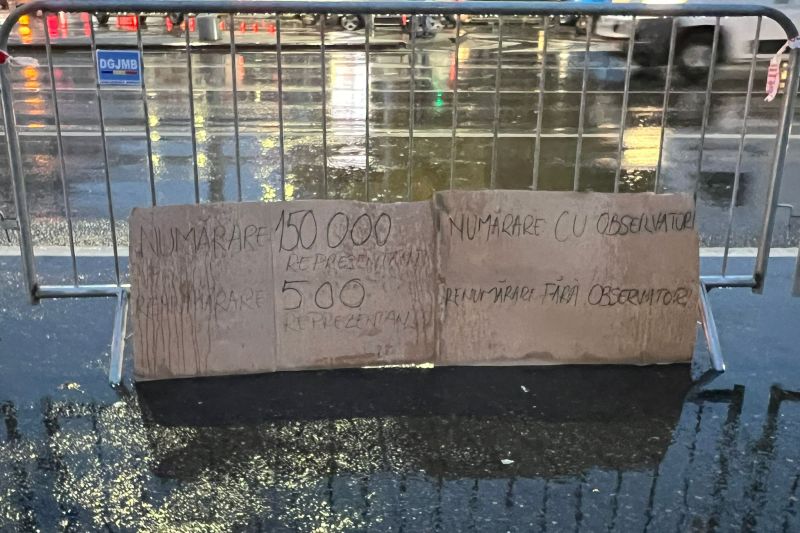 DGJMB
NUMĂRARE 150 000
REPREZENTANȚI
RENUMĂRARE 500
REPREZENTANȚI
NUMĂRARE CU OBSERVATORI
RENUMĂRARE FĂRĂ OBSERVATORI